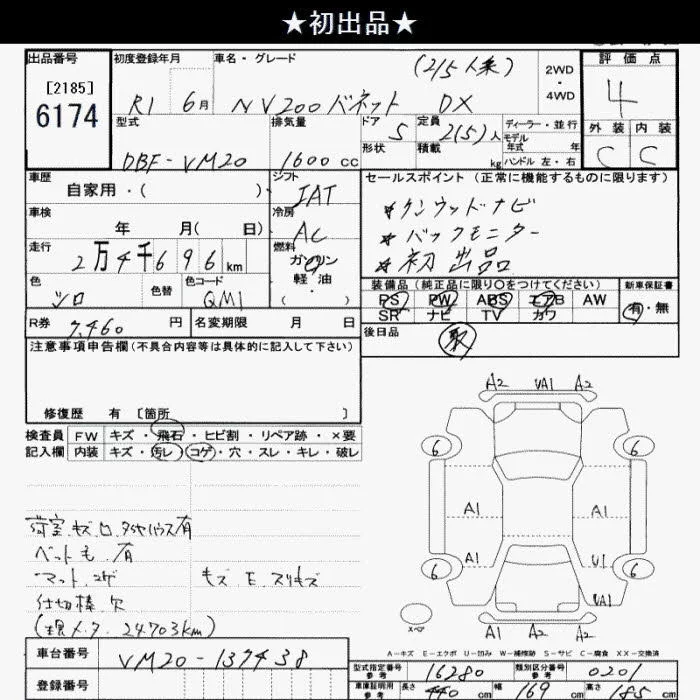 ★初出品★
出品番号 初度登録年月 車名・グレード (2/5人乗) 2WD 4WD 評価点
[2185] 6174 R1 6月 NV200バネット DX 4
型式 排気量 ドア 5 定員 2(5)人 ディーラー・並行 外装 内装
形状 積載 kg モデル年式 年 ハンドル 左・右
DBF-VM20 1600cc C C
車歴 自家用・( ) シフト IAT セールスポイント (正常に機能するものに限ります)
車検 年 月( 日) 冷房 AC ★ケンウッドナビ
★バックモニター
走行 2万4千696km 燃料 ガソリン 軽油 ・( ) ★初出品
色 シロ 色替 色コード QM1 装備品(純正品に限り○をつけてください) 新車保証書
PS PW ABS エアB AW 有・無
SR ナビ TV カワ
R券 7,460円 名変期限 月 日 後日品 取
注意事項申告欄(不具合内容等は具体的に記入して下さい)
修復歴 有 [箇所 ]
A2 VA1 A2
検査員 FW キズ・飛石・ヒビ割・リペア跡・×要
記入欄 内装 キズ・汚レ・コゲ・穴・スレ・キレ・破レ
6 6
A1 A1
荷室.キズ.タイヤハウス有
ベット 有
マット.コゲ キズ E.スリキズ
A1 U1
6 6
仕切棒.欠 UA1
(現メータ 24703km) スペア A2 A2
A-キズ E-エクボ U-凹み W-補修跡 S-サビ C-腐食 XX-交換済
車台番号 VM20-137438
型式指定番号 参考 16280 類別区分番号 参考 0201
登録番号 車庫証明用 参考 長さ 440cm 幅 169cm 高さ 185cm